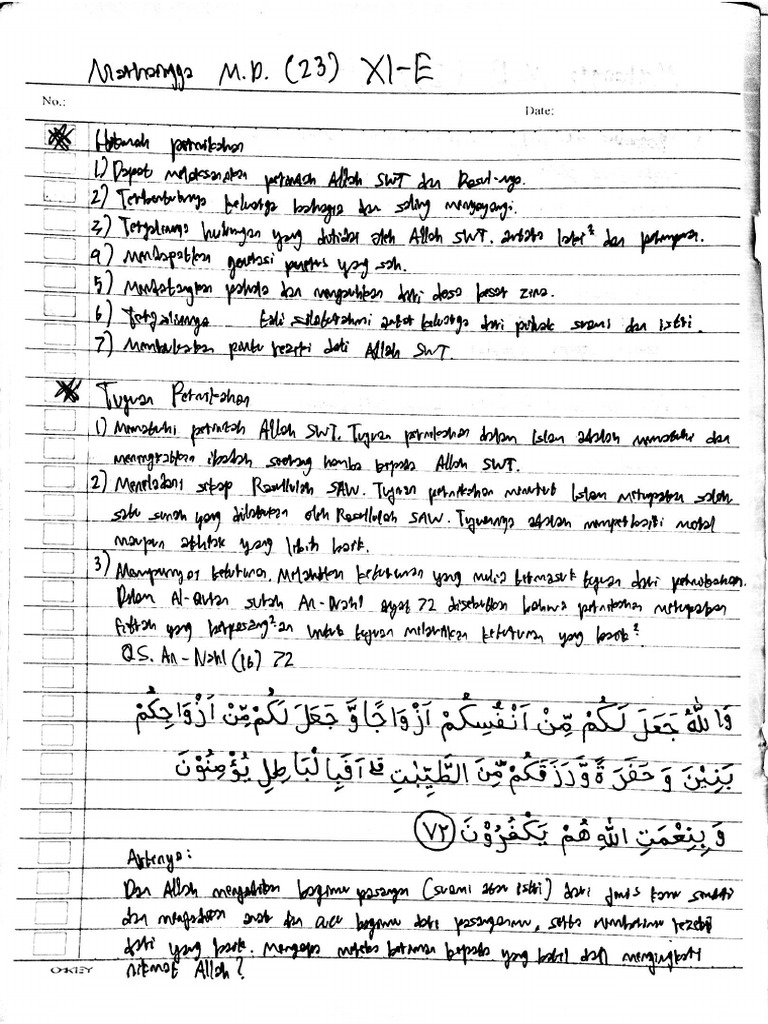 Marhangga M.D. (23) XI-E
No.: Date:
Hikmah pernikahan
1) Dapat melaksanakan perintah Allah SWT dan Rasul-nya.
2) Terbentuknya keluarga bahagia dan saling menyayangi.
3) Terjalinnya hubungan yang diridai oleh Allah SWT. antara laki² dan perempuan.
4) Mendapatkan generasi penerus yang sah.
5) Mendatangkan pahala dan menjauhkan dari dosa besar zina.
6) Terjalinnya tali silaturahmi antar keluarga dari pihak suami dan istri.
7) Membukakan pintu rezeki dari Allah SWT.
Tujuan Pernikahan
1) Mematuhi perintah Allah SWT. Tujuan pernikahan dalam Islam adalah mematuhi dan
meningkatkan ibadah seorang hamba kepada Allah SWT.
2) Meneladani sikap Rasullulah SAW. Tujuan pernikahan menurut Islam merupakan salah
satu sunah yang dilakukan oleh Rasullulah SAW. Tujuannya adalah memperbaiki moral
maupun akhlak yang lebih baik.
3) keturunan. Melahirkan keturunan yang mulia termasuk tujuan dari pernikahan.
Dalam Al-Quran surah An-Nahl ayat 72 disebutkan bahwa pernikahan merupakan
fitrah yang berpasang²an untuk tujuan melahirkan keturunan yang baik²
QS. An-Nahl (16) 72
وَاللّٰهُ جَعَلَ لَكُمْ مِّنْ اَنْفُسِكُمْ اَزْوَاجًا وَّ جَعَلَ لَكُمْ مِّنْ اَزْوَاجِكُمْ
بَنِيْنَ وَ حَفَرَ ةً وَّرَزَقَكُمْ مِّنَ الطَّيِّبٰتِ ۗ اَفَبِالْبَاطِلِ يُؤْمِنُوْنَ
وَبِنِعْمَتِ اللّٰهِ هُمْ يَكْفُرُوْنَ ٧٢
Artinya:
Dan Allah menjadikan bagimu pasangan (suami atau istri) dari jenis kamu sendiri
dan menjadikan anak dan cucu bagimu dari pasanganmu, serta memberimu rezeki
dari yang baik. Mengapa mereka beriman kepada yang batil dan mengingkari
nikmat Allah?